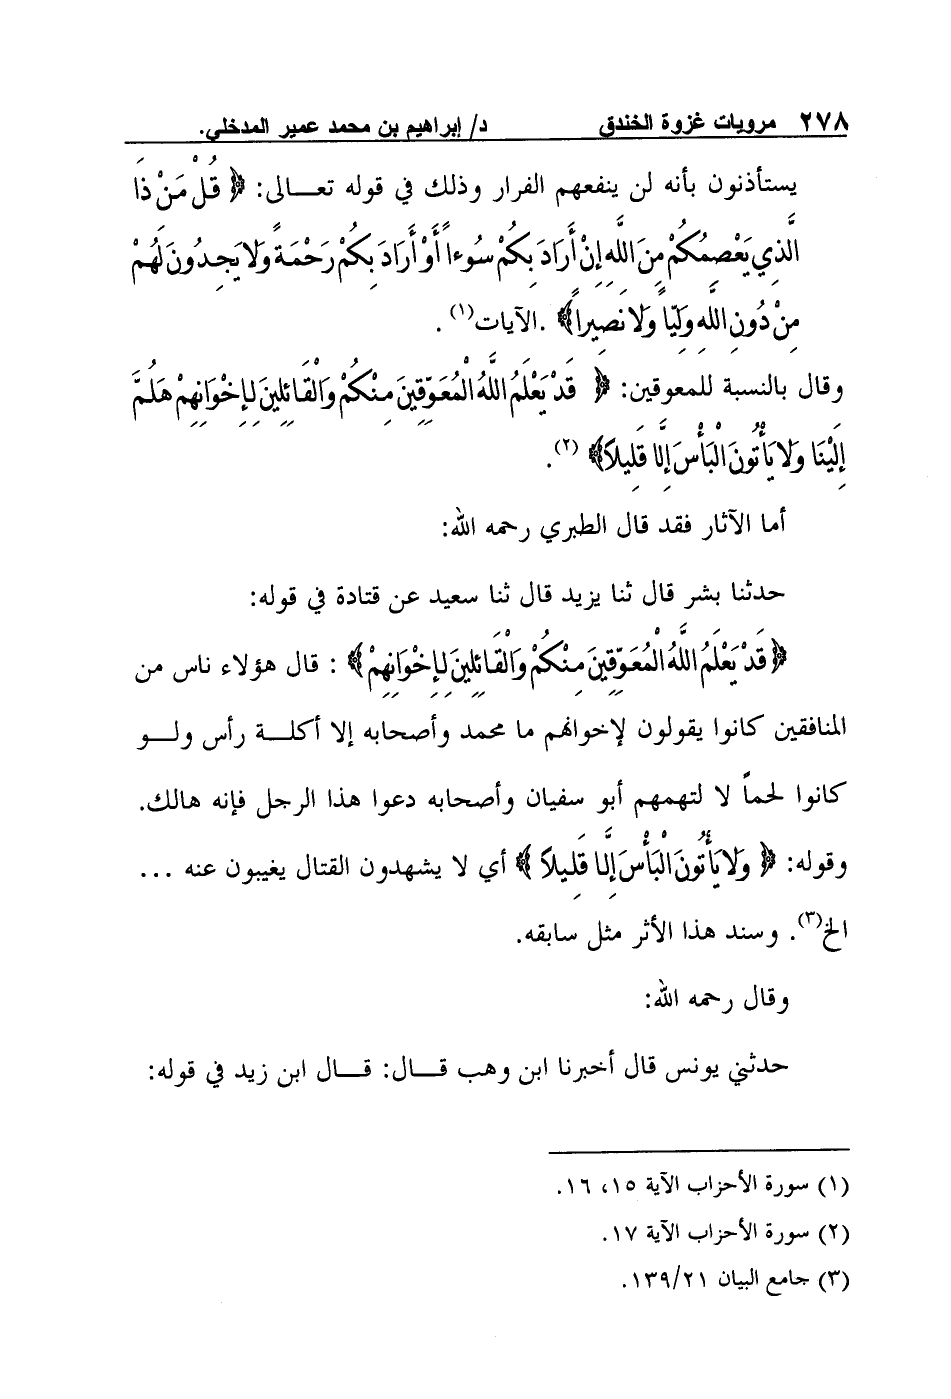 ٢٧٨ مرويات غزوة الخندق د/ إبراهيم بن محمد عمير المدخلي.
يستأذنون بأنه لن ينفعهم الفرار وذلك في قوله تعـــالى: ﴿ قُلْ مَنْ ذَا
الَّذِي يَعْصِمُكُمْ مِنَ اللَّهِ إِنْ أَرَادَ بِكُمْ سُوءاً أَوْ أَرَادَ بِكُمْ رَحْمَةً وَلا يَجِدُونَ لَهُمْ
مِنْ دُونِ اللَّهِ وَلِيّاً وَلا نَصِيراً﴾ .الآيات(١) .
وقال بالنسبة للمعوقين: ﴿ قَدْ يَعْلَمُ اللَّهُ الْمُعَوِّقِينَ مِنْكُمْ وَالْقَائِلِينَ لِإِخْوَانِهِمْ هَلُمَّ
إِلَيْنَا وَلا يَأْتُونَ الْبَأْسَ إِلَّا قَلِيلاً﴾ (٢).
أما الآثار فقد قال الطبري رحمه الله:
حدثنا بشر قال ثنا يزيد قال ثنا سعيد عن قتادة في قوله:
﴿ قَدْ يَعْلَمُ اللَّهُ الْمُعَوِّقِينَ مِنْكُمْ وَالْقَائِلِينَ لِإِخْوَانِهِمْ﴾ : قال هؤلاء ناس من
المنافقين كانوا يقولون لإخوانهم ما محمد وأصحابه إلا أكلـــة رأس ولـــو
كانوا لحماً لا لتهمهم أبو سفيان وأصحابه دعوا هذا الرجل فإنه هالك.
وقوله: ﴿ وَلا يَأْتُونَ الْبَأْسَ إِلَّا قَلِيلاً ﴾ أي لا يشهدون القتال يغيبون عنه ...
الخ(٣). وسند هذا الأثر مثل سابقه.
وقال رحمه الله:
حدثني يونس قال أخبرنا ابن وهب قـــال: قـــال ابن زيد في قوله:
(١) سورة الأحزاب الآية ١٥، ١٦.
(٢) سورة الأحزاب الآية ١٧.
(٣) جامع البيان ١٣٩/٢١.